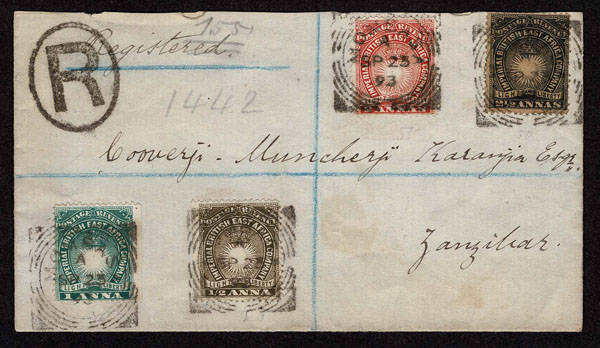 155
Registered.
R
1442
POSTAGE REVENUE
IMPERIAL BRITISH EAST AFRICA COMPANY
LIGHT LIBERTY
ANNAS
A
SP 23
93
POSTAGE REVENUE
IMPERIAL BRITISH EAST AFRICA COMPANY
LIGHT LIBERTY
2½ ANNAS
Cooverji - Muncherji Karanjia Esqr
Zanzibar.
POSTAGE REVENUE
IMPERIAL BRITISH EAST AFRICA COMPANY
LIGHT LIBERTY
1 ANNA
POSTAGE REVENUE
IMPERIAL BRITISH EAST AFRICA COMPANY
LIGHT LIBERTY
1/2 ANNA